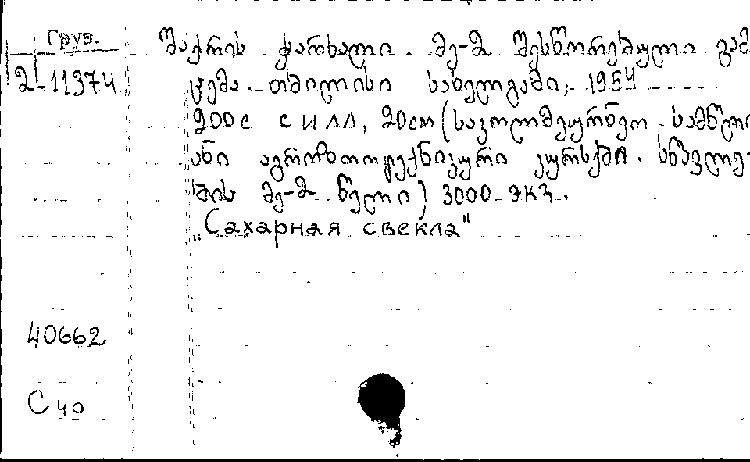 Груз.
2-11374
შაქრის ჭარხალი. მე-2 შესწორებული გამ
ცემა. თბილისი სახელგამი, 1954
200с с илл, 20см (საკოლმეურნეო სამწლი
ანი აგროზოოტექნიკური კურსები. სწავლე-
ბის მე-2 წელი) 3000 экз.
„Сахарная свекла"
40662
С 40